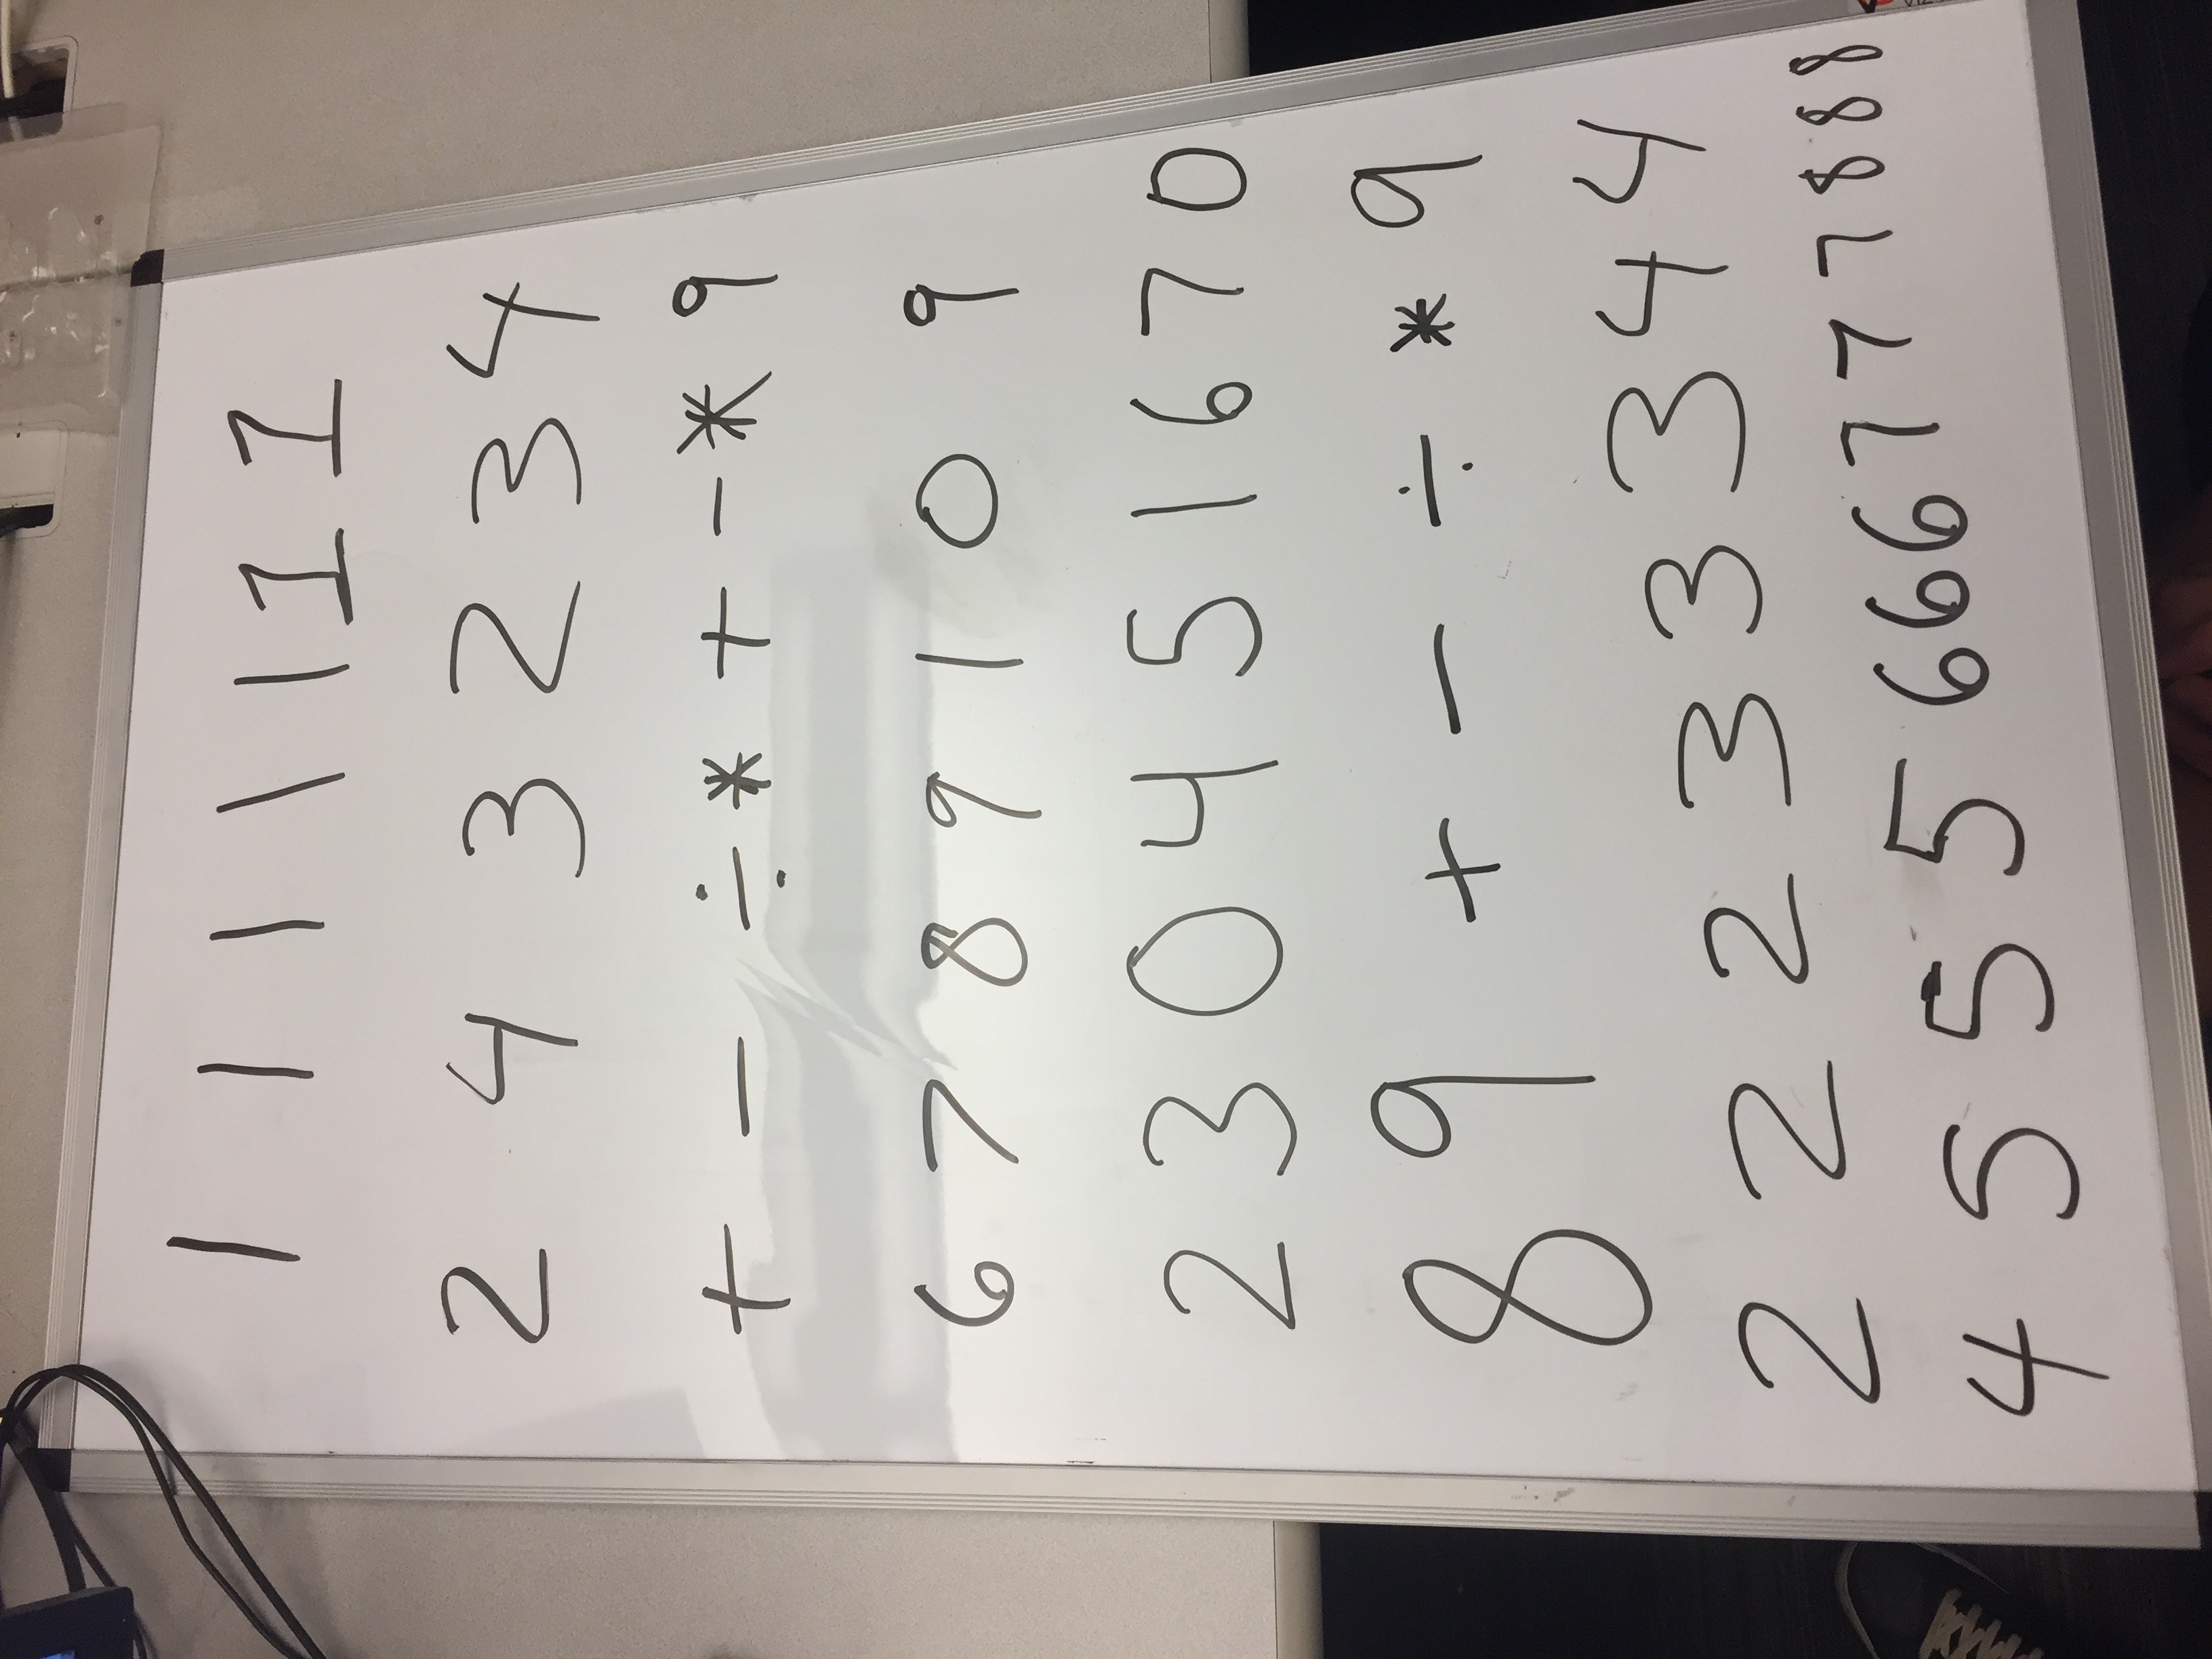 1 1 1 1 1 1 1
2 4 3 2 3 4
+ - ÷ * + - * 9
6 7 8 9 1 0 9
2 3 0 4 5 1 6 7 0
8 9 + - ÷ * 9
2 2 2 3 3 3 4 4
4 5 5 5 6 6 6 7 7 7 8 8 8